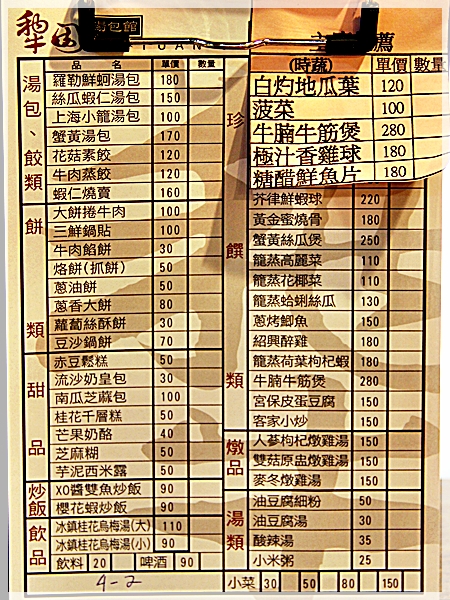 犁园湯包館
TUAN
品名 單價 數量
湯包、餃類
羅勒鮮蚵湯包 180
絲瓜蝦仁湯包 150
上海小籠湯包 100
蟹黃湯包 170
花菇素餃 120
牛肉蒸餃 120
蝦仁燒賣 160
餅類
大餅捲牛肉 100
三鮮鍋貼 100
牛肉餡餅 30
烙餅(抓餅) 50
蔥油餅 50
蔥香大餅 80
蘿蔔絲酥餅 30
豆沙鍋餅 70
甜品
赤豆鬆糕 50
流沙奶皇包 30
南瓜芝蔴包 100
桂花千層糕 50
芒果奶酪 40
芝麻糊 50
芋泥西米露 50
炒飯
XO醬雙魚炒飯 90
櫻花蝦炒飯 90
飲品
冰鎮桂花烏梅湯(大) 110
冰鎮桂花烏梅湯(小) 90
飲料 20 啤酒 90
4-2
薦
(時蔬) 單價 數量
白灼地瓜葉 120
菠菜 100
牛腩牛筋煲 280
極汁香雞球 180
糖醋鮮魚片 180
珍饌類
芥律鮮蝦球 220
黃金蜜燒骨 180
蟹黃絲瓜煲 250
籠蒸高麗菜 110
籠蒸花椰菜 110
籠蒸蛤蜊絲瓜 130
蔥烤鯽魚 150
紹興醉雞 180
籠蒸荷葉枸杞蝦 180
牛腩牛筋煲 280
宮保皮蛋豆腐 150
客家小炒 150
燉品
人蔘枸杞燉雞湯 150
雙菇原盅燉雞湯 150
麥冬燉雞湯 150
湯類
油豆腐細粉 50
油豆腐湯 30
酸辣湯 35
小米粥 25
小菜 30 50 80 150